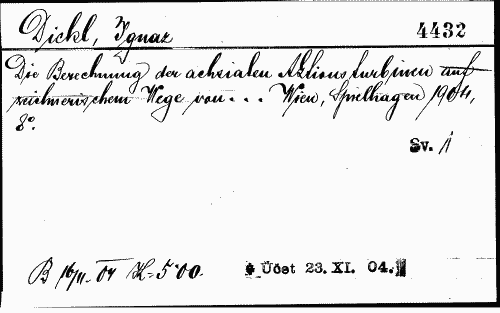 Dickl, Ignaz
4432
Die Berechnung der achsialen Aktionsturbinen auf
zeichnerischem Wege von... Wien, Spielhagen 1904,
8°.
Sv. 1
B 16/11. 04 K=5·00. Účet 23. XI. 04.